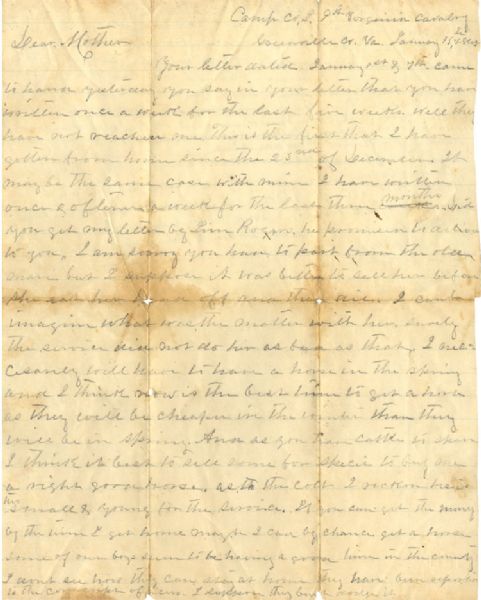 Camp Co. I, 9th Virginia Cavalry
Co. Va. January
Dear Mother
Your letter dated January 1st & 7th came
to hand yesterday you say in your letter that you have
written once a week for the last five weeks. well they
have not reached me this is the first that I have
gotten from home since the 23rd of December. It
may be the same case with mine I have written
once & oftener a week for the last three months.
you get my letter by he promised to
to you. I am sorry you have to part from the old
mare but I suppose it was better to sell her before
she off I can't
imagine what was the matter with her, surely
the service did not do her as bad as that. I
will have to have a horse in the spring
and I think now is the best time to get a horse
as they will be cheaper in the winter than they
will be in spring. And as you have cattle to spare
I think it best to sell some for specie to buy me
a right good horse. as to the colt I reckon he is
too small & young for the service. If you can get the money
by the time I get home maybe I can by chance get a horse
some of our boys seem to be having a good time in the county
I can't see how they can stay at home they have been
to the I suppose they